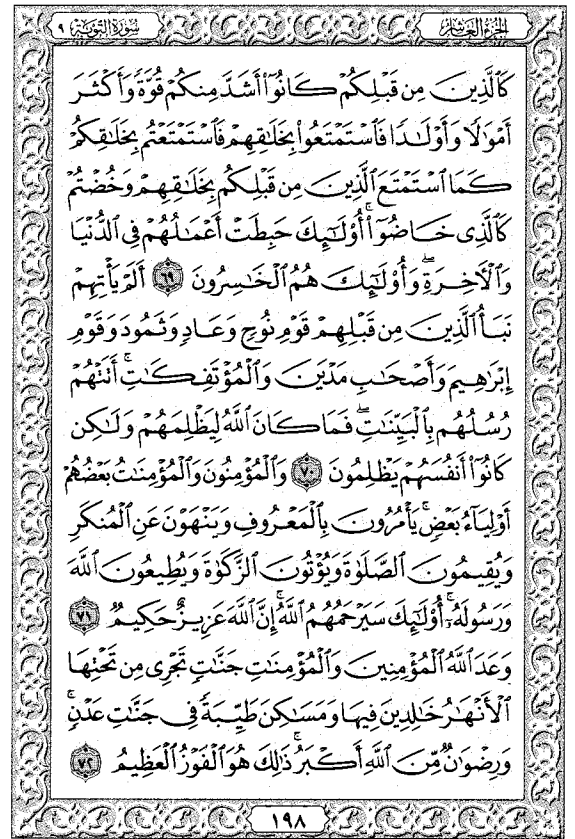 الجزء العاشر سورة التوبة ٩
كَٱلَّذِينَ مِن قَبْلِكُمْ كَانُوٓا۟ أَشَدَّ مِنكُمْ قُوَّةً وَأَكْثَرَ
أَمْوَٰلًا وَأَوْلَٰدًا فَٱسْتَمْتَعُوا۟ بِخَلَٰقِهِمْ فَٱسْتَمْتَعْتُم بِخَلَٰقِكُمْ
كَمَا ٱسْتَمْتَعَ ٱلَّذِينَ مِن قَبْلِكُم بِخَلَٰقِهِمْ وَخُضْتُمْ
كَٱلَّذِى خَاضُوٓا۟ ۚ أُو۟لَٰٓئِكَ حَبِطَتْ أَعْمَٰلُهُمْ فِى ٱلدُّنْيَا
وَٱلْءَاخِرَةِ ۖ وَأُو۟لَٰٓئِكَ هُمُ ٱلْخَٰسِرُونَ ٦٩ أَلَمْ يَأْتِهِمْ
نَبَأُ ٱلَّذِينَ مِن قَبْلِهِمْ قَوْمِ نُوحٍ وَعَادٍ وَثَمُودَ وَقَوْمِ
إِبْرَٰهِيمَ وَأَصْحَٰبِ مَدْيَنَ وَٱلْمُؤْتَفِكَٰتِ ۚ أَتَتْهُمْ
رُسُلُهُم بِٱلْبَيِّنَٰتِ ۖ فَمَا كَانَ ٱللَّهُ لِيَظْلِمَهُمْ وَلَٰكِن
كَانُوٓا۟ أَنفُسَهُمْ يَظْلِمُونَ ٧٠ وَٱلْمُؤْمِنُونَ وَٱلْمُؤْمِنَٰتُ بَعْضُهُمْ
أَوْلِيَآءُ بَعْضٍ ۚ يَأْمُرُونَ بِٱلْمَعْرُوفِ وَيَنْهَوْنَ عَنِ ٱلْمُنكَرِ
وَيُقِيمُونَ ٱلصَّلَوٰةَ وَيُؤْتُونَ ٱلزَّكَوٰةَ وَيُطِيعُونَ ٱللَّهَ
وَرَسُولَهُۥٓ ۚ أُو۟لَٰٓئِكَ سَيَرْحَمُهُمُ ٱللَّهُ ۗ إِنَّ ٱللَّهَ عَزِيزٌ حَكِيمٌ ٧١
وَعَدَ ٱللَّهُ ٱلْمُؤْمِنِينَ وَٱلْمُؤْمِنَٰتِ جَنَّٰتٍ تَجْرِى مِن تَحْتِهَا
ٱلْأَنْهَٰرُ خَٰلِدِينَ فِيهَا وَمَسَٰكِنَ طَيِّبَةً فِى جَنَّٰتِ عَدْنٍ ۚ
وَرِضْوَٰنٌ مِّنَ ٱللَّهِ أَكْبَرُ ۚ ذَٰلِكَ هُوَ ٱلْفَوْزُ ٱلْعَظِيمُ ٧٢
١٩٨